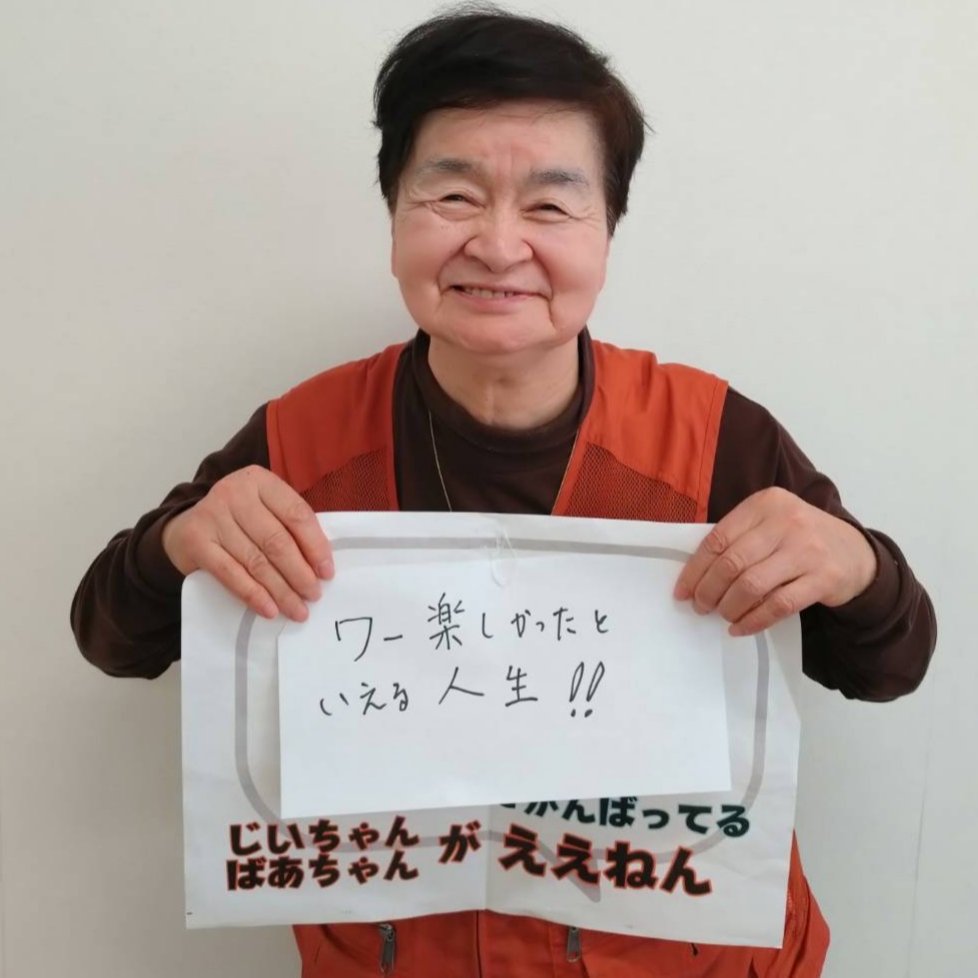 ワー楽しかったと
いえる人生!!
がんばってる
じいちゃん
ばあちゃん
が ええねん